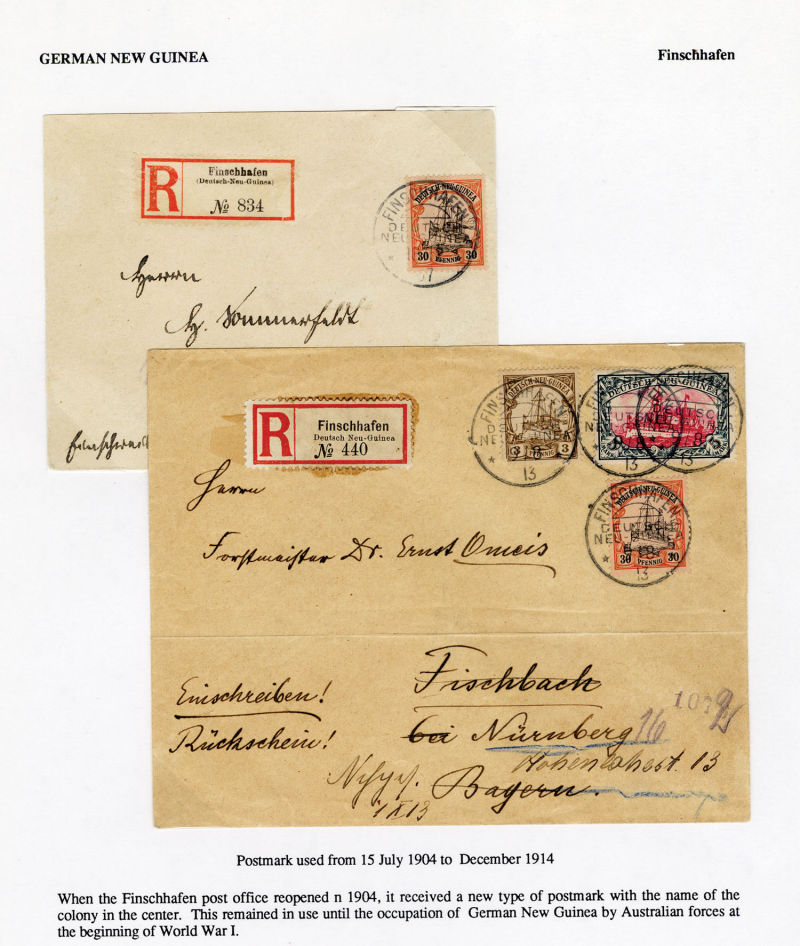 GERMAN NEW GUINEA
Finschhafen
R
Finschhafen
(Deutsch-Neu-Guinea)
№ 834
FINSCHHAFEN
DEUTSCH-NEU-GUINEA
DEUTSCH
NEU-GUINEA
30 PFENNIG 30
* 07
Herrn
H. Sommerfeldt
R
Finschhafen
Deutsch Neu-Guinea
№ 440
FINSCHHAFEN
DEUTSCH-NEU-GUINEA
3 PFENNIG 3
* 13
DEUTSCH-NEU-GUINEA
13
13
FINSCHHAFEN
DEUTSCH-NEU-GUINEA
DEUTSCH
NEU-GUINEA
30 PFENNIG 30
* 13
Herrn
Forstmeister Dr. Ernst Omeis
Einschreiben!
Rückschein!
Fischbach
bei Nürnberg
Hohenlohestr. 13
Bayern.
1 X 13
Postmark used from 15 July 1904 to December 1914
When the Finschhafen post office reopened n 1904, it received a new type of postmark with the name of the
colony in the center. This remained in use until the occupation of German New Guinea by Australian forces at
the beginning of World War I.